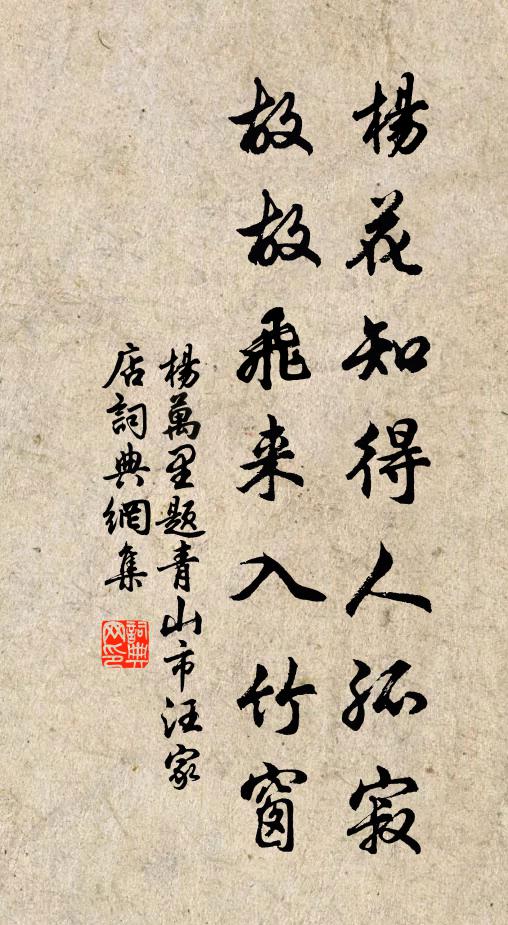 楊花知得人孤寂
故故飛来入竹窗
楊萬里題青山市汪家
店詞典網集
詞典
网印